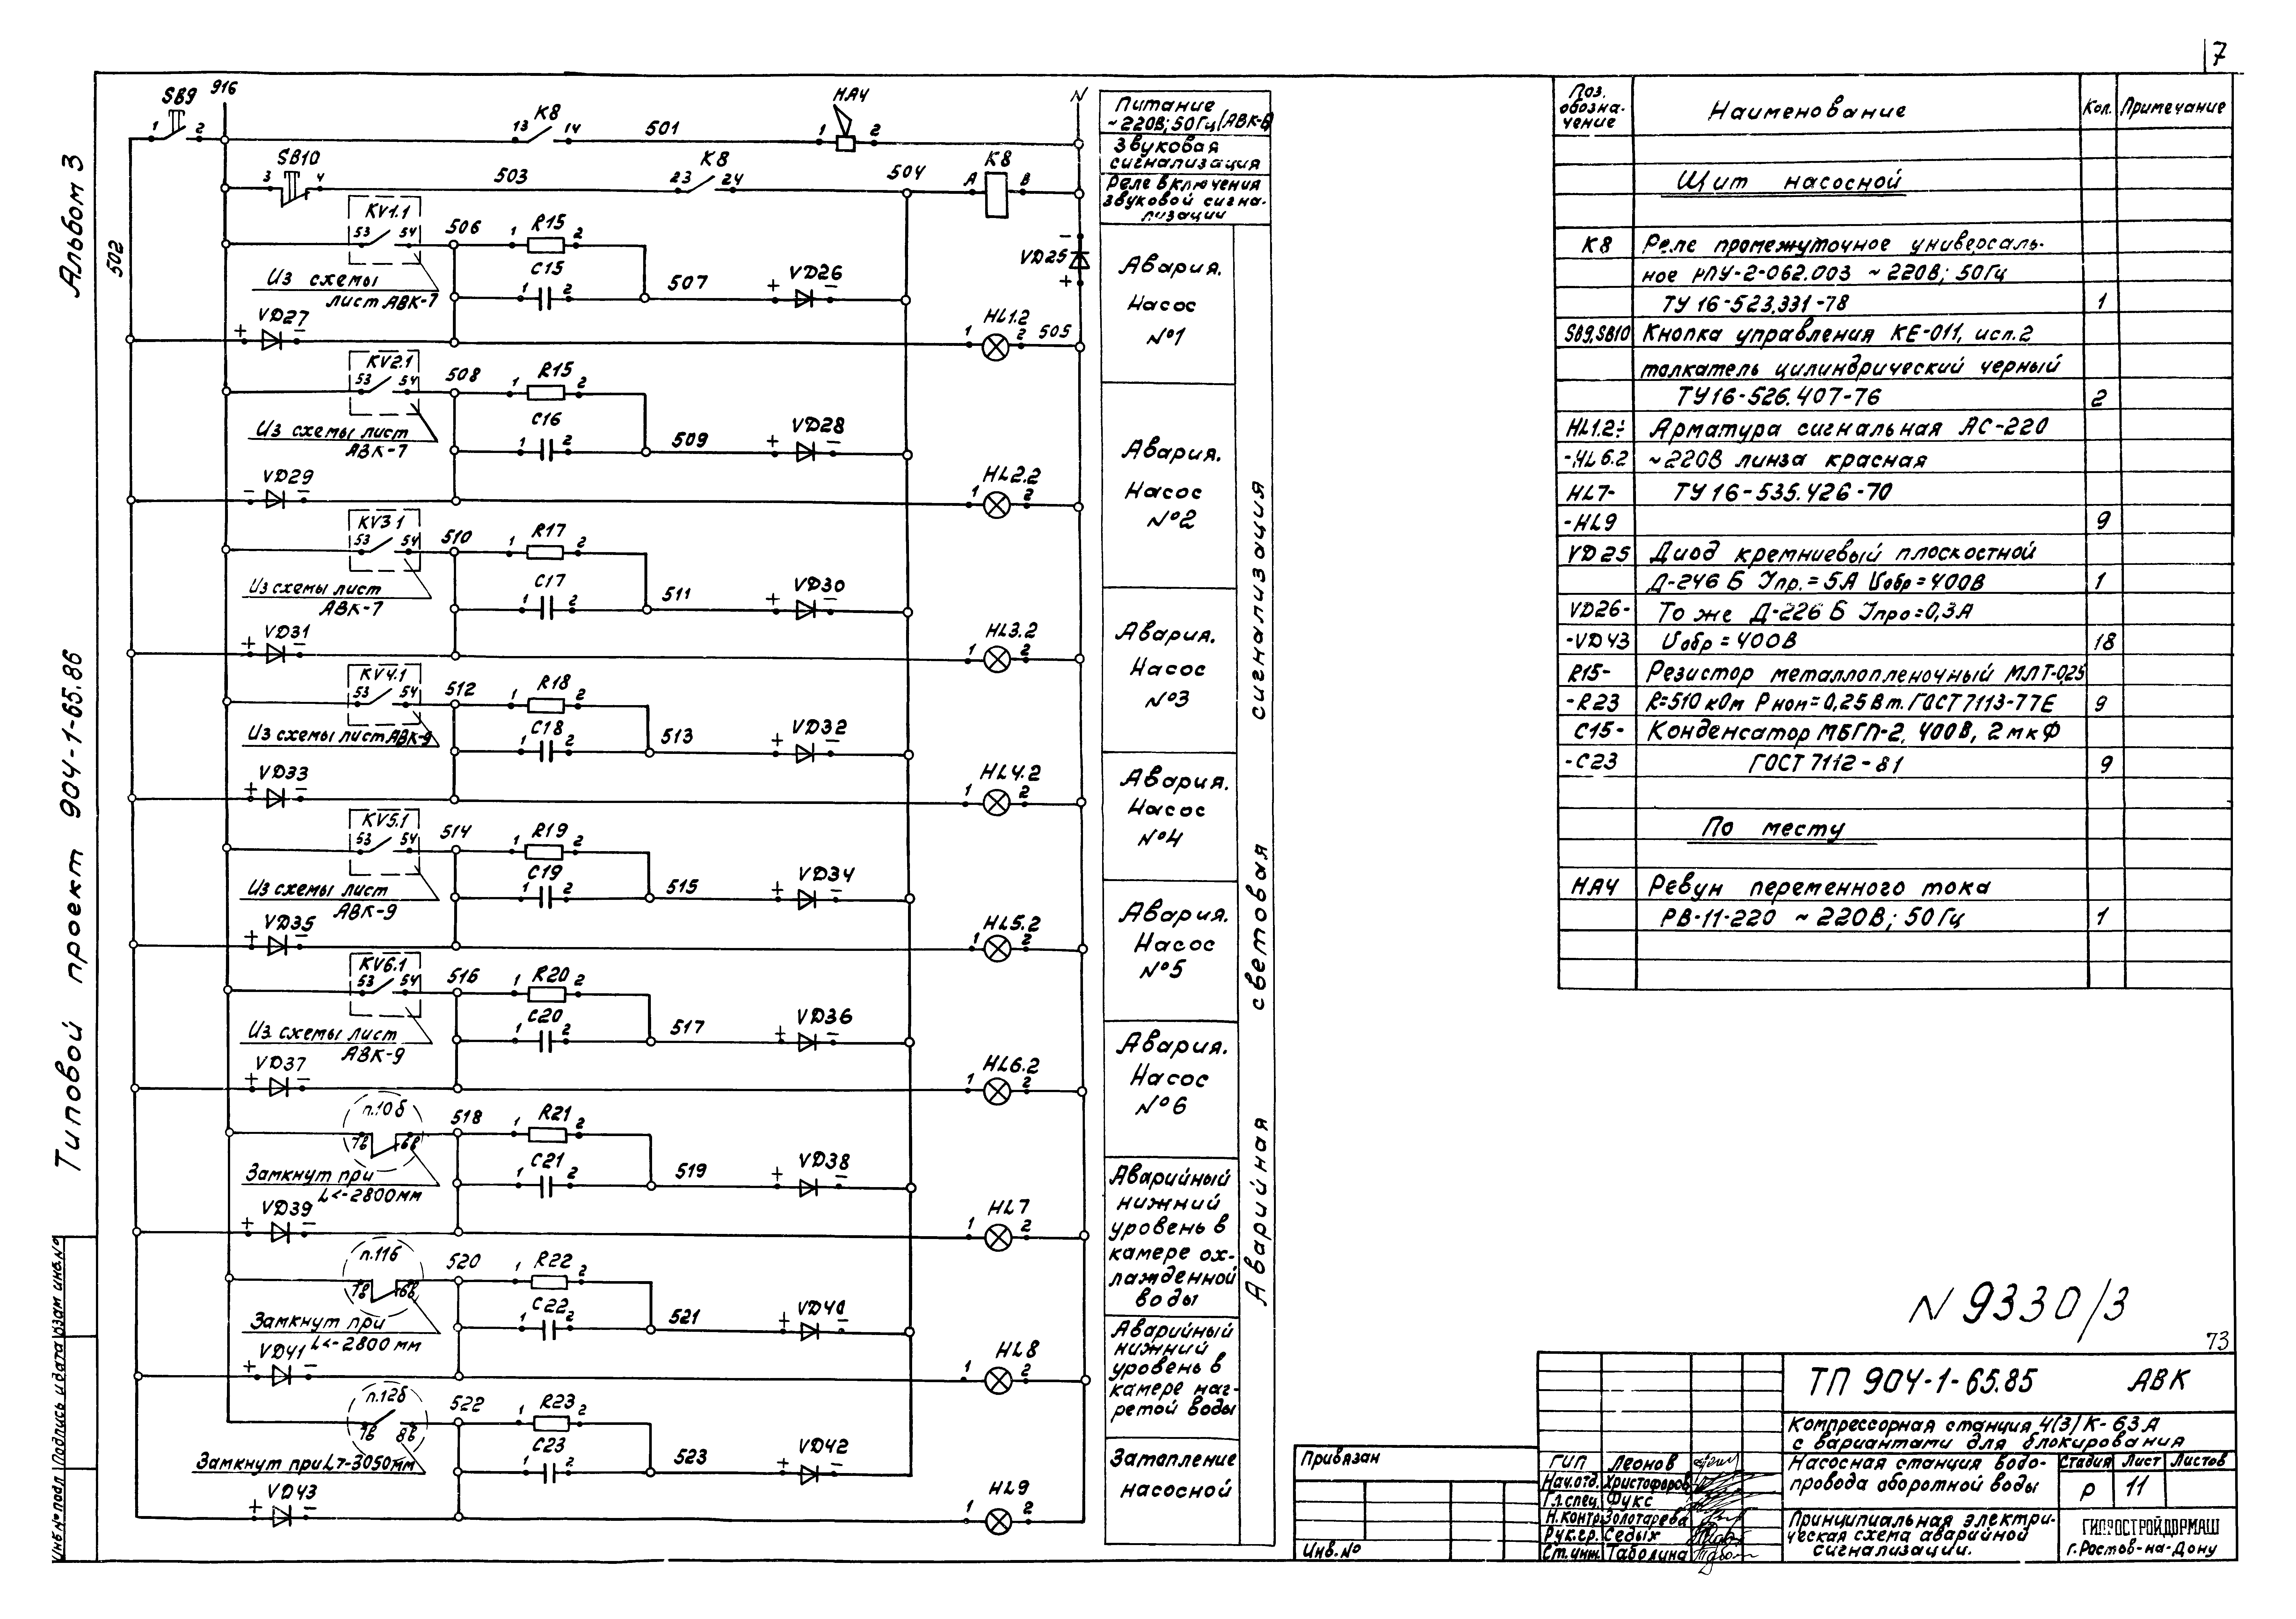 7
Альбом 3
Типовой проект 904-1-65.86
Инв.№ подл
Подпись и дата
Взам инв.№
SB9
916
1 2
502
K8
13 14
501
НА4
1 2
N
SB10
3 4
503
K8
23 24
504
K8
А В
KV1.1
53 54
506
R15
1 2
C15
1 2
507
VD26
+ -
VD25
-
+
Из схемы
лист АВК-7
VD27
+ -
HL1.2
1 2
505
KV2.1
53 54
508
R15
1 2
C16
1 2
509
VD28
+ -
Из схемы лист
АВК-7
VD29
- -
HL2.2
1 2
KV3.1
53 54
510
R17
1 2
C17
1 2
511
VD30
+ -
Из схемы лист
АВК-7
VD31
+ -
HL3.2
1 2
KV4.1
53 54
512
R18
1 2
C18
1 2
513
VD32
+ -
Из схемы лист АВК-9
VD33
+ -
HL4.2
1 2
KV5.1
53 54
514
R19
1 2
C19
1 2
515
VD34
+ -
Из схемы лист
АВК-9
VD35
+ -
HL5.2
1 2
KV6.1
53 54
516
R20
1 2
C20
1 2
517
VD36
+ -
Из схемы лист
АВК-9
VD37
+ -
HL6.2
1 2
п.10б
7в 6в
518
R21
1 2
C21
1 2
519
VD38
+ -
Замкнут при
L<-2800мм
VD39
+ -
HL7
1 2
п.11б
7в 6в
520
R22
1 2
C22
1 2
521
VD40
+ -
Замкнут при
L<-2800 мм
VD41
+ -
HL8
1 2
п.12б
7в 8в
522
R23
1 2
C23
1 2
523
VD42
+ -
Замкнут при L>-3050мм
VD43
+ -
HL9
1 2
Питание
~220В; 50Гц (АВК-6)
Звуковая
сигнализация
Реле включения
звуковой сигна-
лизации
Авария.
Насос
№1
Авария.
Насос
№2
Авария.
Насос
№3
Авария.
Насос
№4
Авария.
Насос
№5
Авария.
Насос
№6
Аварийный
нижний
уровень в
камере ох-
лажденной
воды
Аварийный
нижний
уровень в
камере наг-
ретой воды
Затопление
насосной
Аварийная световая сигнализация
Поз.
обозна-
чение
Наименование
Кол.
Примечание
Щит насосной
K8 Реле промежуточное универсаль-
ное РПУ-2-062.003 ~220В; 50Гц
ТУ 16-523.331-78 1
SB9,SB10 Кнопка управления КЕ-011, исп.2
толкатель цилиндрический черный
ТУ16-526.407-76 2
HL1.2÷ Арматура сигнальная АС-220
-HL6.2 ~220В линза красная
HL7- ТУ 16-535.426-70
-HL9 9
VD25 Диод кремниевый плоскостной
Д-246 Б Iпр.=5А Uобр=400В 1
VD26- То же Д-226 Б Iпро=0,3А
-VD43 Uобр=400В 18
R15- Резистор металлопленочный МЛТ-0,25
-R23 R=510 кОм Рном=0,25Вт. ГОСТ 7113-77Е 9
C15- Конденсатор МБГП-2, 400В, 2мкФ
-C23 ГОСТ 7112-81 9
По месту
НА4 Ревун переменного тока
РВ-11-220 ~220В; 50Гц 1
N 9330/3
73
ТП 904-1-65.85 АВК
Компрессорная станция 4(3)К-63А
с вариантами для блокирования
Насосная станция водо-
провода оборотной воды
Стадия Лист Листов
Р 11
Принципиальная электри-
ческая схема аварийной
сигнализации.
ГИПРОСТРОЙДОРМАШ
г.Ростов-на-Дону
ГИП Леонов
Нач.отд. Христофоров
Гл.спец. Фукс
Н.контр. Золотарева
Рук.гр. Седых
Ст.инж. Таболина
Привязан
Инв.№